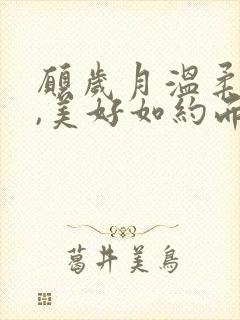 願歲月溫柔
,美好如約而
葛井美鳥